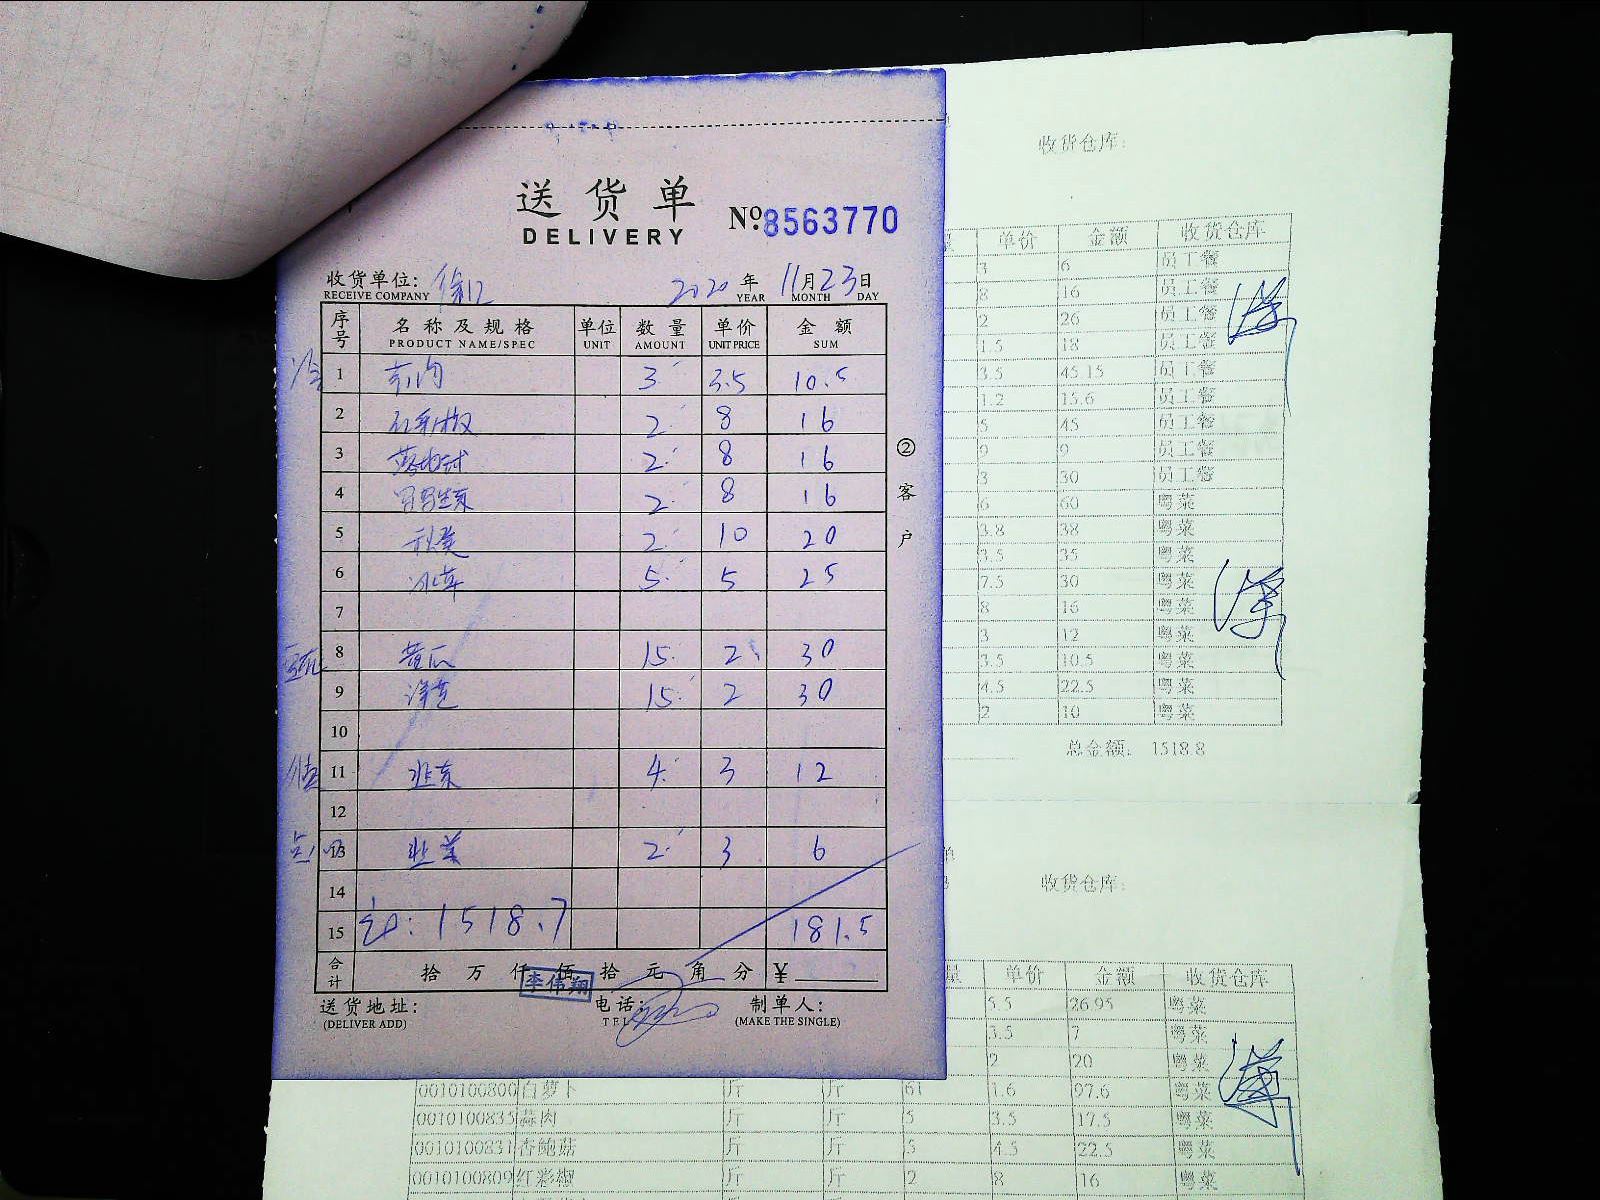 送货单
DELIVERY
No.8563770
收货单位:
RECEIVE COMPANY
2020 年 11 月 23 日
YEAR MONTH DAY
序号 名称及规格 单位 数量 单价 金额
PRODUCT NAME/SPEC UNIT AMOUNT UNIT PRICE SUM
1 3 3.5 10.5
2 2 8 16
3 2 8 16
4 2 8 16
5 2 10 20
6 冰草 5 5 25
7
8 黄瓜 15 2 30
9 洋芫 15 2 30
10
11 韭菜 4 3 12
12
13 韭菜 2 3 6
14
15 1518.7 181.5
合计 拾 万 仟 佰 拾 元 角 分 ¥
李伟翔
送货地址:
(DELIVER ADD)
电话:
TEL
制单人:
(MAKE THE SINGLE)
②客户
收货仓库:
单价 金额 收货仓库
3 6 员工餐
8 16 员工餐
2 26 员工餐
1.5 18 员工餐
3.5 45.15 员工餐
1.2 15.6 员工餐
5 45 员工餐
9 9 员工餐
3 30 员工餐
6 60 粤菜
3.8 38 粤菜
3.5 35 粤菜
7.5 30 粤菜
8 16 粤菜
3 12 粤菜
3.5 10.5 粤菜
4.5 22.5 粤菜
2 10 粤菜
总金额: 1518.8
收货仓库:
单价 金额 收货仓库
5.5 26.95 粤菜
3.5 7 粤菜
2 20 粤菜
0010100800 白萝卜 斤 斤 61 1.6 97.6 粤菜
0010100835 蒜肉 斤 斤 5 3.5 17.5 粤菜
0010100831 香鲍菇 斤 斤 5 4.5 22.5 粤菜
0010100809 红彩椒 斤 斤 2 8 16 粤菜